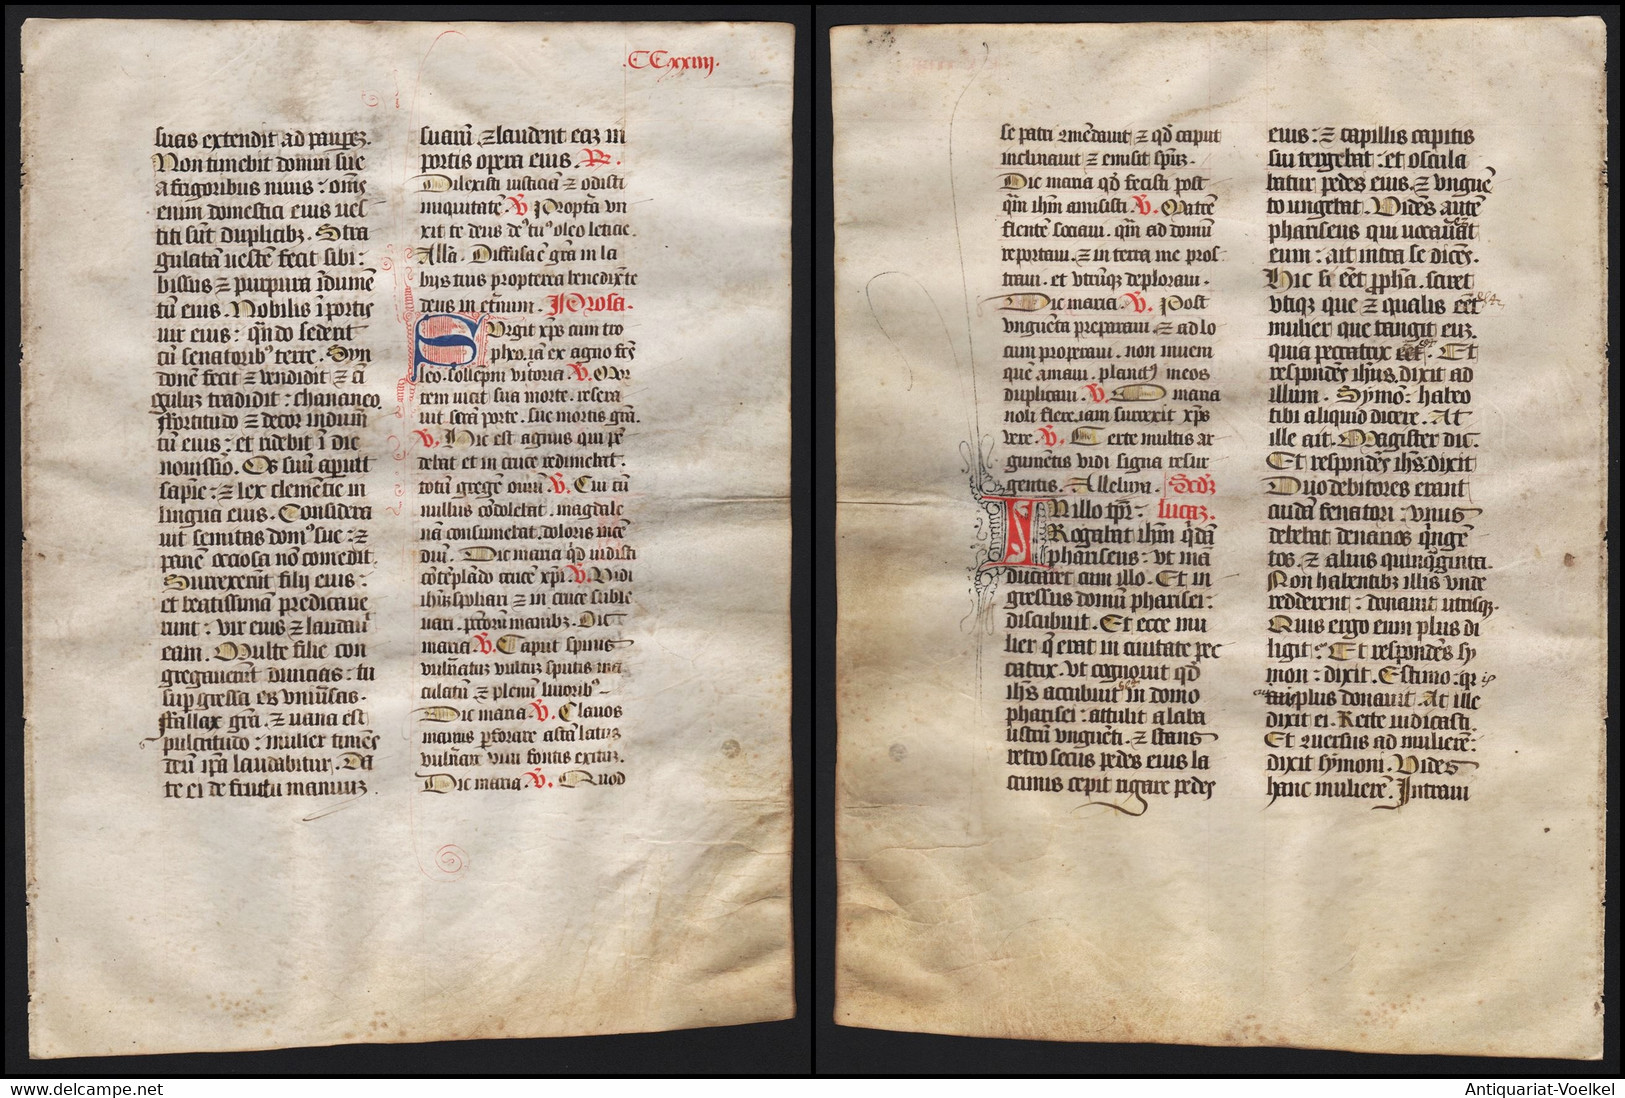 .CCxxiiij.
suas extendit ad paup̄ez.
Non timebit domui sue
a frigoribus niuis : om̄s
enim domestici eius ues
titi sūt duplicibz. Stra
gulatam uestē fecit sibi :
bissus ⁊ purpura īdumē
tū eius. Nobilis ī portis
uir eius : qn̄do sederit
cū senatoribꝰ terre. Syn
donē fecit ⁊ vendidit ⁊ cī
gulus tradidit : chananeo
ffortitudo ⁊ decor indum̄
tū eius : et ridebit ī die
nouissīo. Os suū aperuit
sapīe : ⁊ lex clemētie in
lingua eius. Considera
uit semitas domꝰ sue : ⁊
panē occiosa nō comedit
Surexerūt filij eius :
et beatissimā predicaue
runt : vir eius ⁊ laudauͥ
eam. Multe filie con
gregauerūt diuicias : tu
sup̄gressa es vniūsas.
ffallax gr̄a. ⁊ uana est
pulcritudo : mulier timēs
deū ip̄a laudabitur. Da
te ei de fructu manuuz
suarū ⁊ laudent eaz in
portis opera eius. R.
Dilexisti iusticiā ⁊ odisti
iniquitatē. V Propt̄a vn
xit te deus deꝰ tuꝰ oleo leticie.
Alla. Diffusa ē gr̄a in la
bijs tuis propterea benedix̄te
deus in et̄num. Prosa.
Surgit xp̄s cum tro
pheo. iā ex agno fc̄s
leo. sollepni victoria. V. Mor
tem uicit sua morte. resera
uit seram porte. sue mortis gr̄a.
V. Hic est agnus qui pē
debat et in cruce redimebat.
totū gregē ouiū V. Cui cū
nullus cōdolebat. magdale
nā consumebat. doloris incē
diū. Dic maria qd̄ uidisti
cōtēplādo crucē xp̄i. V. Vidi
ih̄m spoliari ⁊ in cruce suble
uari. pcc̄orum manibz. Dic
maria. V. Caput spinis
vuln̄atuz vultuz sputis ma
culatū. ⁊ plenū liuoribꝰ
Dic maria. V. Clauos
manus p̄forare astā latuz
vuln̄are viui fontis exituz.
Dic maria. V. Quod
se patri 2mēdauit ⁊ qd̄ caput
inclinauit ⁊ emisit sp̄uz.
Dic maria qd̄ fecisti post
qm̄ ih̄m amisisti. V. Matrē
flentē sociaui. qm̄ ad domū
reportaui. ⁊ in terra me pros
traui. et vtrūqz deploraui.
Dic maria. V. Post
vnguēta preparaui. ⁊ ad lo
cum properaui. non inueni
quē amaui. planctꝰ meos
duplicaui. V. O maria
noli flere. iam surexit xp̄s
vere. V. Certe multis ar
gumētis vidi signa resur
gentis. Alleluya. Scd̄z
In illo tp̄r : lucaz.
Rogabat ih̄m qdā
phariseus : vt mā
ducaret cum illo. Et in
gressus domū pharisei :
discubuit. Et ecce mu
lier q̄ erat in ciuitate pec
catrix. vt cognouit qd̄
ih̄s accubuit in domo
pharisei : attulit alaba
ustrū vnguēti. ⁊ stans
retro secus pedes eius la
crimis cepit rigare pedes
eius : ⁊ capillis capitis
sui tergebat : et oscula
batur pedes eius. ⁊ vnguē
to ungebat. Vidēs autē
phariseus qui uocauerat
eum : ait intra se dicēs.
Hic si eēt pph̄a. sciret
vtiqz que ⁊ qualis eēt
mulier que tangit euz.
quia peccatrix eēt. Et
respondēs ih̄us. dixit ad
illum. Symō : habeo
tibi aliquid dicere. At
ille ait. Magister dic.
Et respondēs ih̄s dixit
Duo debitores erant
cuidā fenatori : vnus
debebat denarios qn̄gē
tos. ⁊ alius quinq̄ginta.
Non habentibz illis vnde
redderent : donauit utrisqz.
Quis ergo eum plus di
ligit : Et respondēs sy
mon : dixit. Estimo : qz is
cui plus donauit. At ille
dixit ei. Recte iudicasti.
Et 2uersus ad mulierē :
dixit symoni. Vides
hanc mulierē. Intraui
www.delcampe.net
Antiquariat-Voelkel